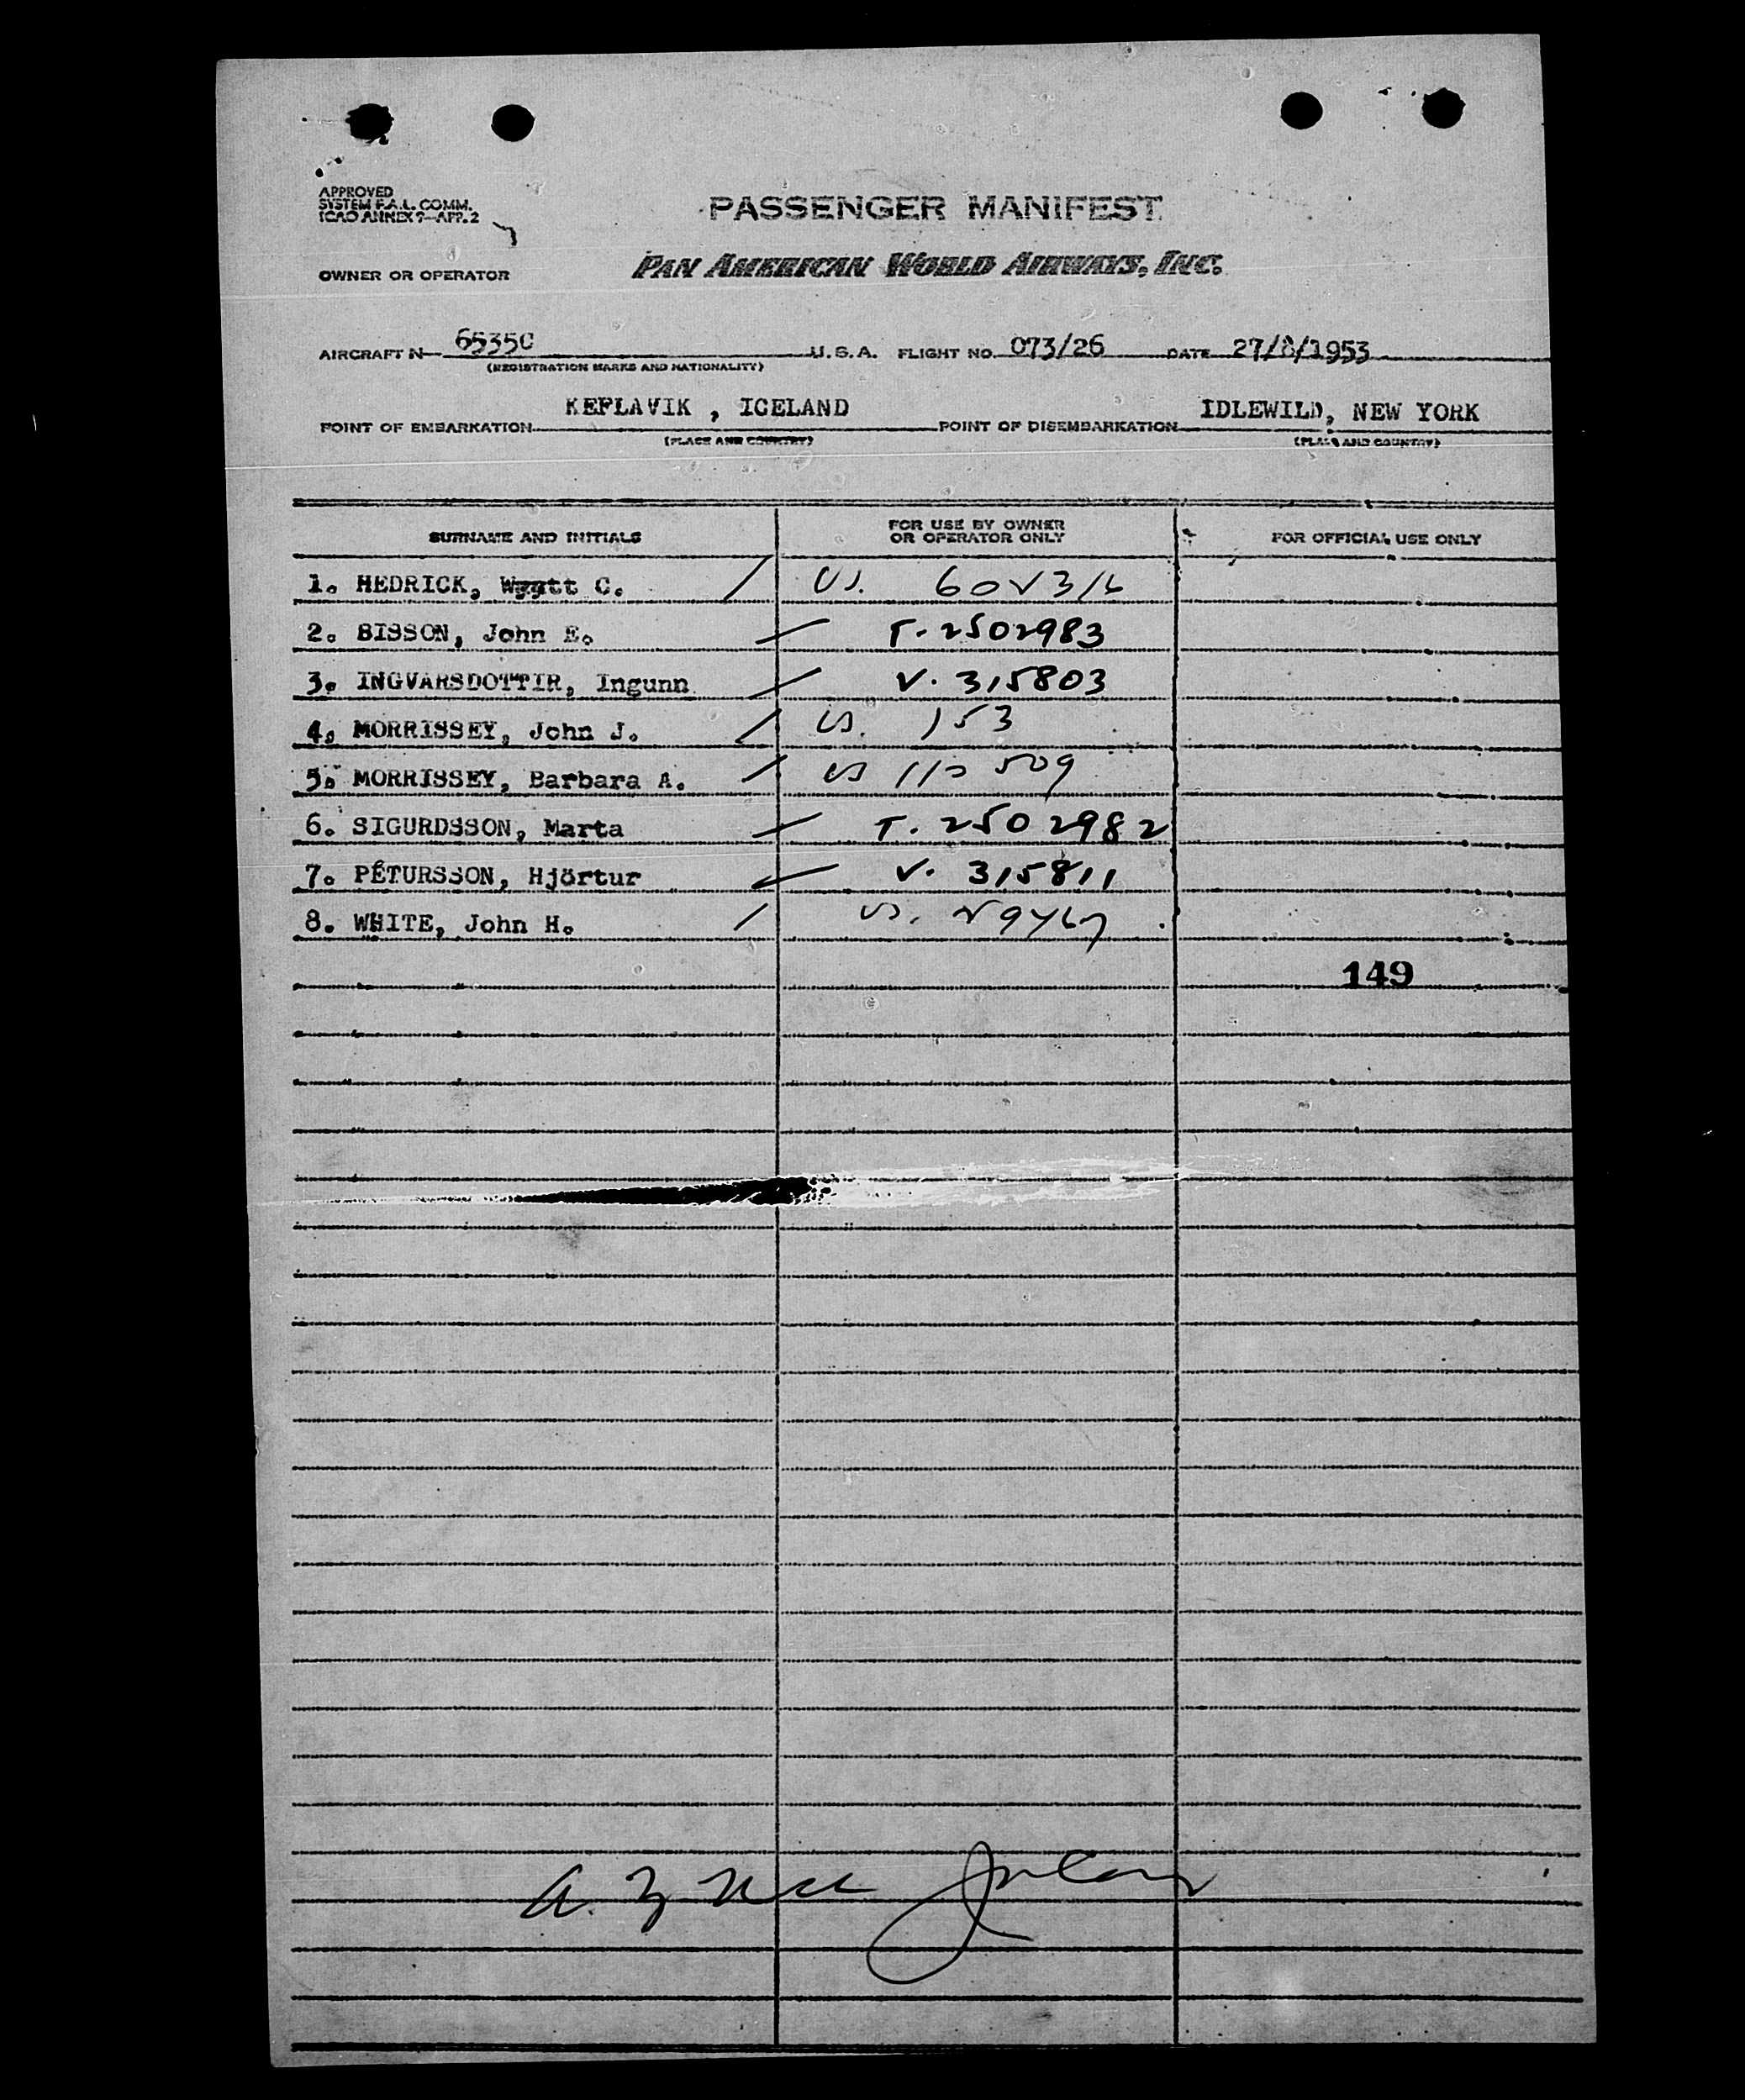 APPROVED
SYSTEM F.A.L. COMM.
ICAO ANNEX 9—APP. 2
PASSENGER MANIFEST
OWNER OR OPERATOR
PAN AMERICAN WORLD AIRWAYS, INC.
AIRCRAFT N— 65350 U.S.A. FLIGHT NO. 073/26 DATE 27/8/1953
(REGISTRATION MARKS AND NATIONALITY)
POINT OF EMBARKATION KEFLAVIK , ICELAND POINT OF DISEMBARKATION IDLEWILD, NEW YORK
(PLACE AND COUNTRY) (PLACE AND COUNTRY)
SURNAME AND INITIALS FOR USE BY OWNER OR OPERATOR ONLY FOR OFFICIAL USE ONLY
1. HEDRICK, Wyatt C. / US.
2. BISSON, John E. T. 2502983
3. INGVARSDOTTIR, Ingunn V. 315803
4. MORRISSEY, John J. / US. 153
5. MORRISSEY, Barbara A. US 509
6. SIGURDSSON, Marta T. 2502982
7. PÉTURSSON, Hjörtur V. 315811
8. WHITE, John H. / US.
149